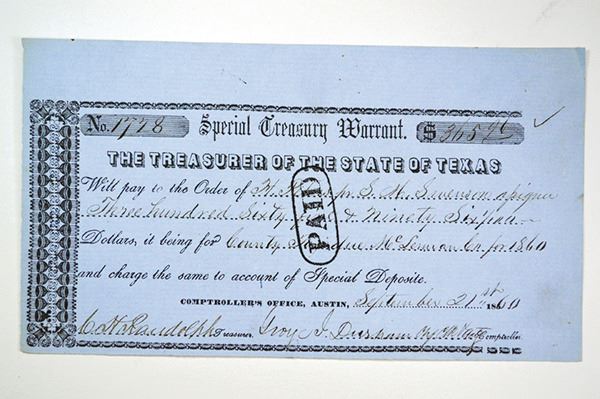 No. 1728 Special Treasury Warrant. $
THE TREASURER OF THE STATE OF TEXAS
Will pay to the Order of S. M. Swenson
Three hundred Sixty & Ninety
Dollars, it being for County due McLennan Co for 1860
and charge the same to account of Special Deposite.
COMPTROLLER'S OFFICE, AUSTIN, September 21st 1860
C. H. Randolph Treasurer. Comptroller
PAID